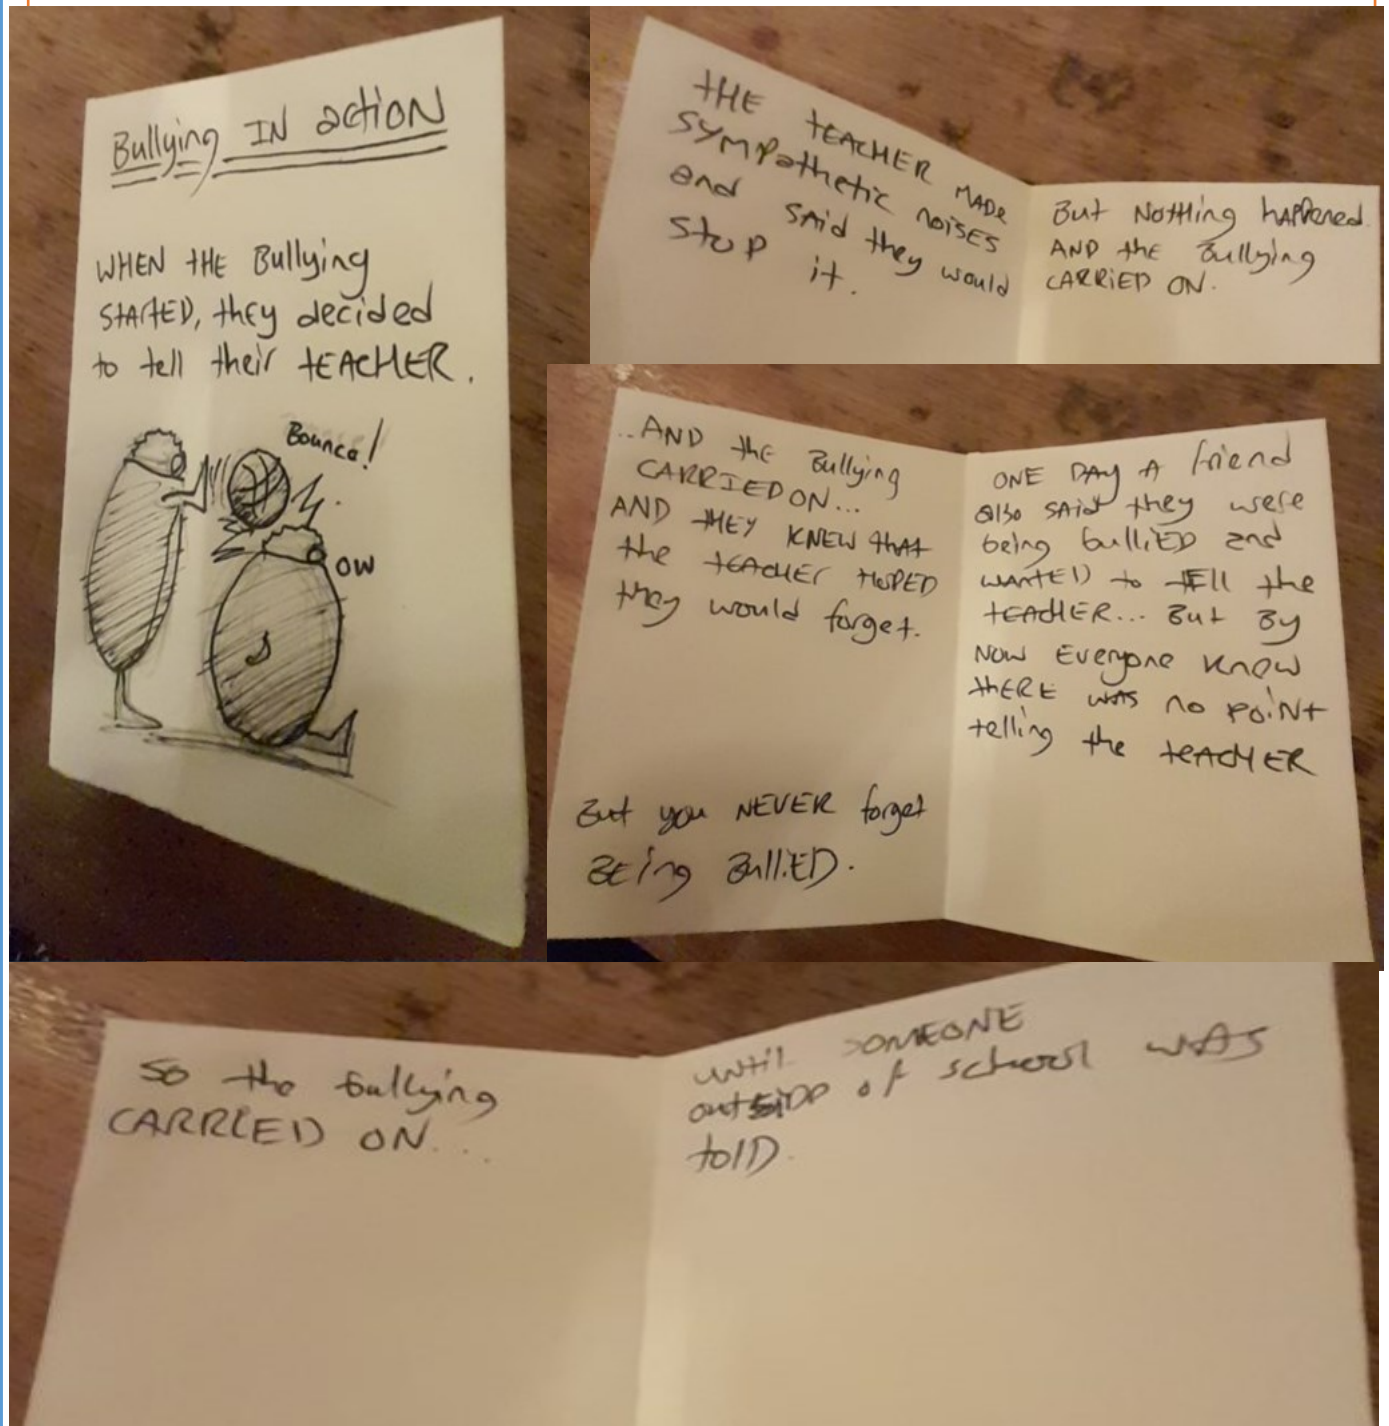 Bullying IN action
WHEN THE Bullying
STARTED, they decided
to tell their TEACHER.
Bounce!
OW
THE TEACHER MADE
SYMPathetic noises
and said they would
STOP it.
But Nothing happened
AND the Bullying
CARRIED ON.
..AND the Bullying
CARRIED ON...
AND THEY KNEW that
the TEACHER HOPED
they would forget.
But you NEVER forget
BEing BulliED.
ONE DAY A friend
also said they were
being bulliED and
WANTED to tEll the
TEACHER... But By
Now Everyone knew
tHERE was no POINT
telling the tEACHER
So the bullying
CARRIED ON...
until SOMEONE
outside of school WAS
tolD.